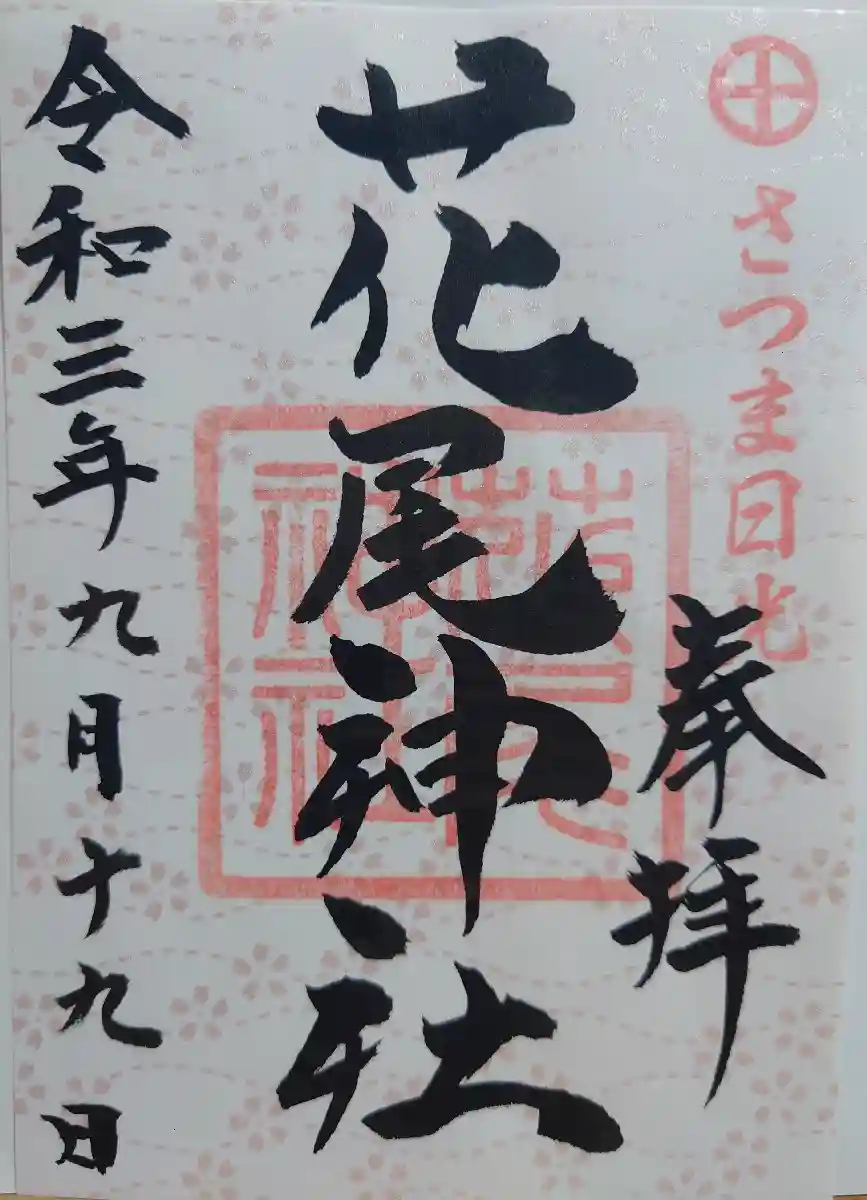 さつま日光
奉拝
花尾神社
令和三年九月十九日